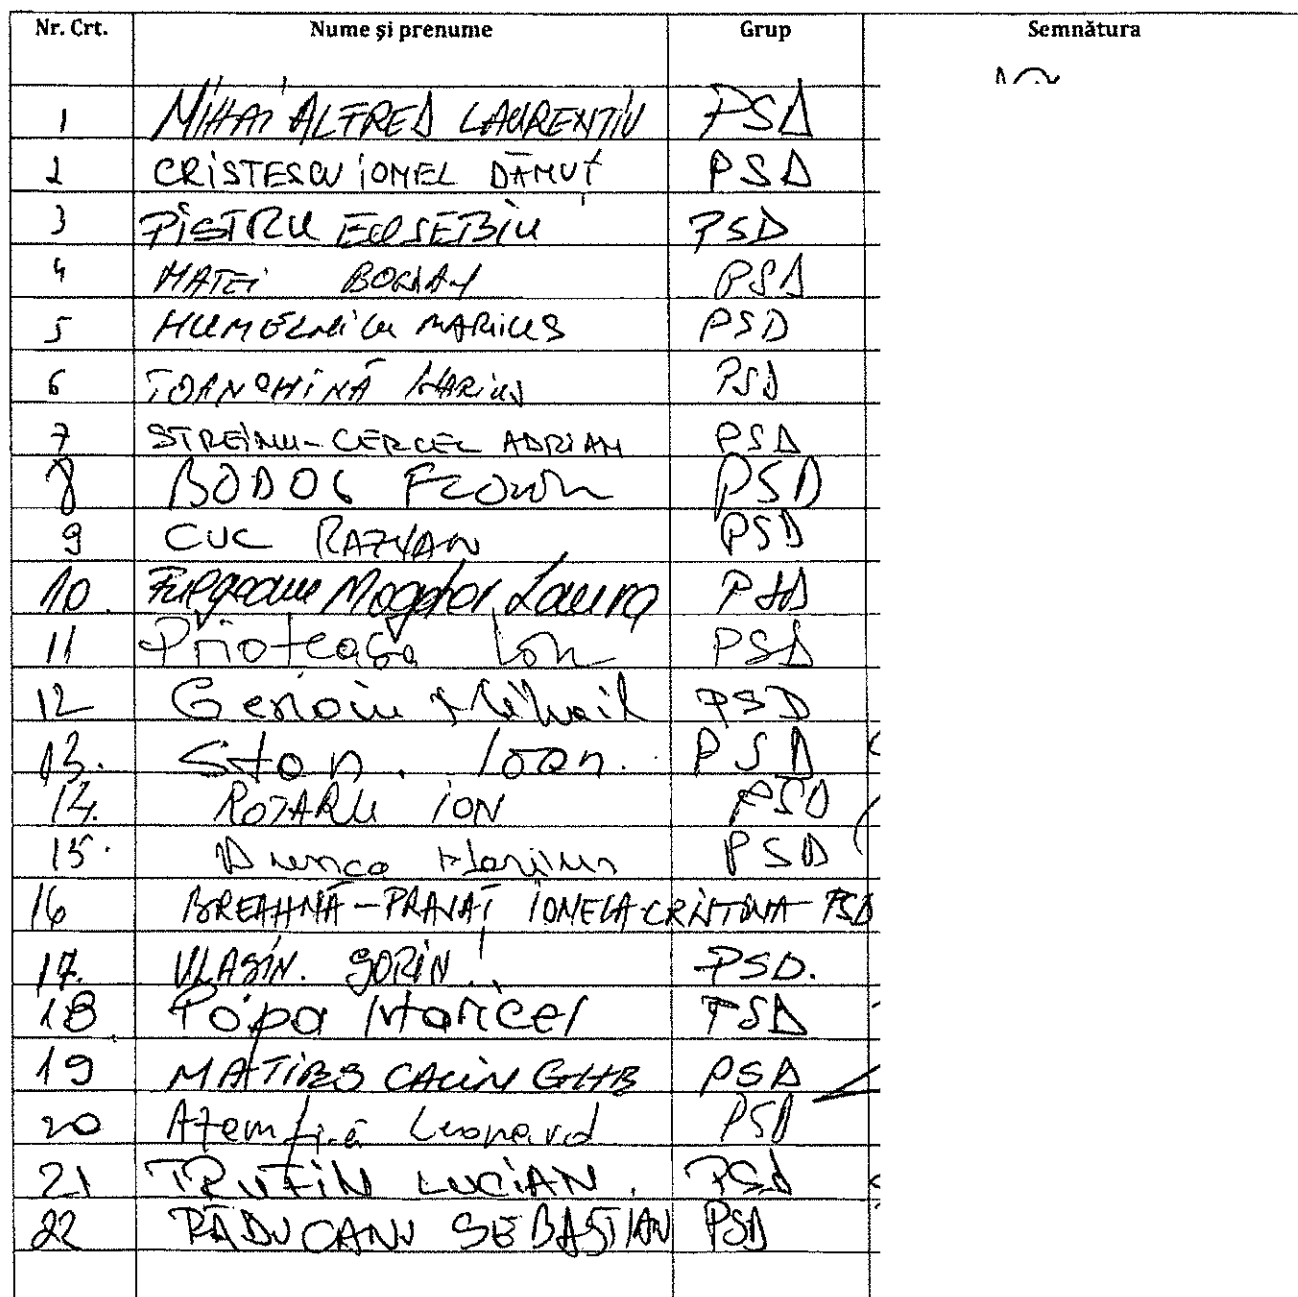 Nr. Crt. Nume și prenume Grup Semnătura
1 MIHAI ALFRED LAURENȚIU PSD
2 CRISTESCU IONEL DĂNUȚ PSD
3 PISTRU EUSEBIU PSD
4 MATEI BOGDAN PSD
5 HUMELNICU MARIUS PSD
6 TOANCHINĂ MARIUS PSD
7 STREINU-CERCEL ADRIAN PSD
8 BODOG Florian PSD
9 CUC RAZVAN PSD
10. Mogdor Laura PSD
11 Prioteasa Ion PSD
12 Genoiu Mihail PSD
13. Stan. Ioan. PSD
14. ROTARU ION PSD
15. Dunca Marius PSD
16 BREAHNĂ-PRAVĂȚ IONELA-CRISTINA PSD
17. VLASIN. SORIN PSD.
18 Popa Maricel PSD
19 MATIEȘ CALIN GHB PSD
20 Azamfirei Leonard PSD
21 TRUFIN LUCIAN. PSD
22 RĂDUCANU SEBASTIAN PSD